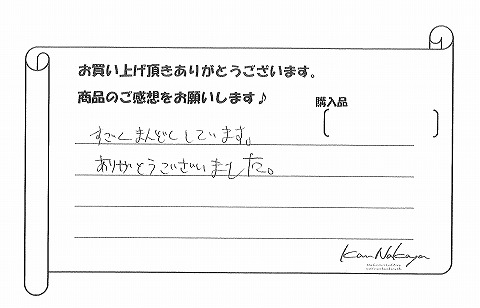 お買い上げ頂きありがとうございます。
商品のご感想をお願いします♪
購入品
すごくまんぞくしています。
ありがとうございいました。
Kan Nakaya